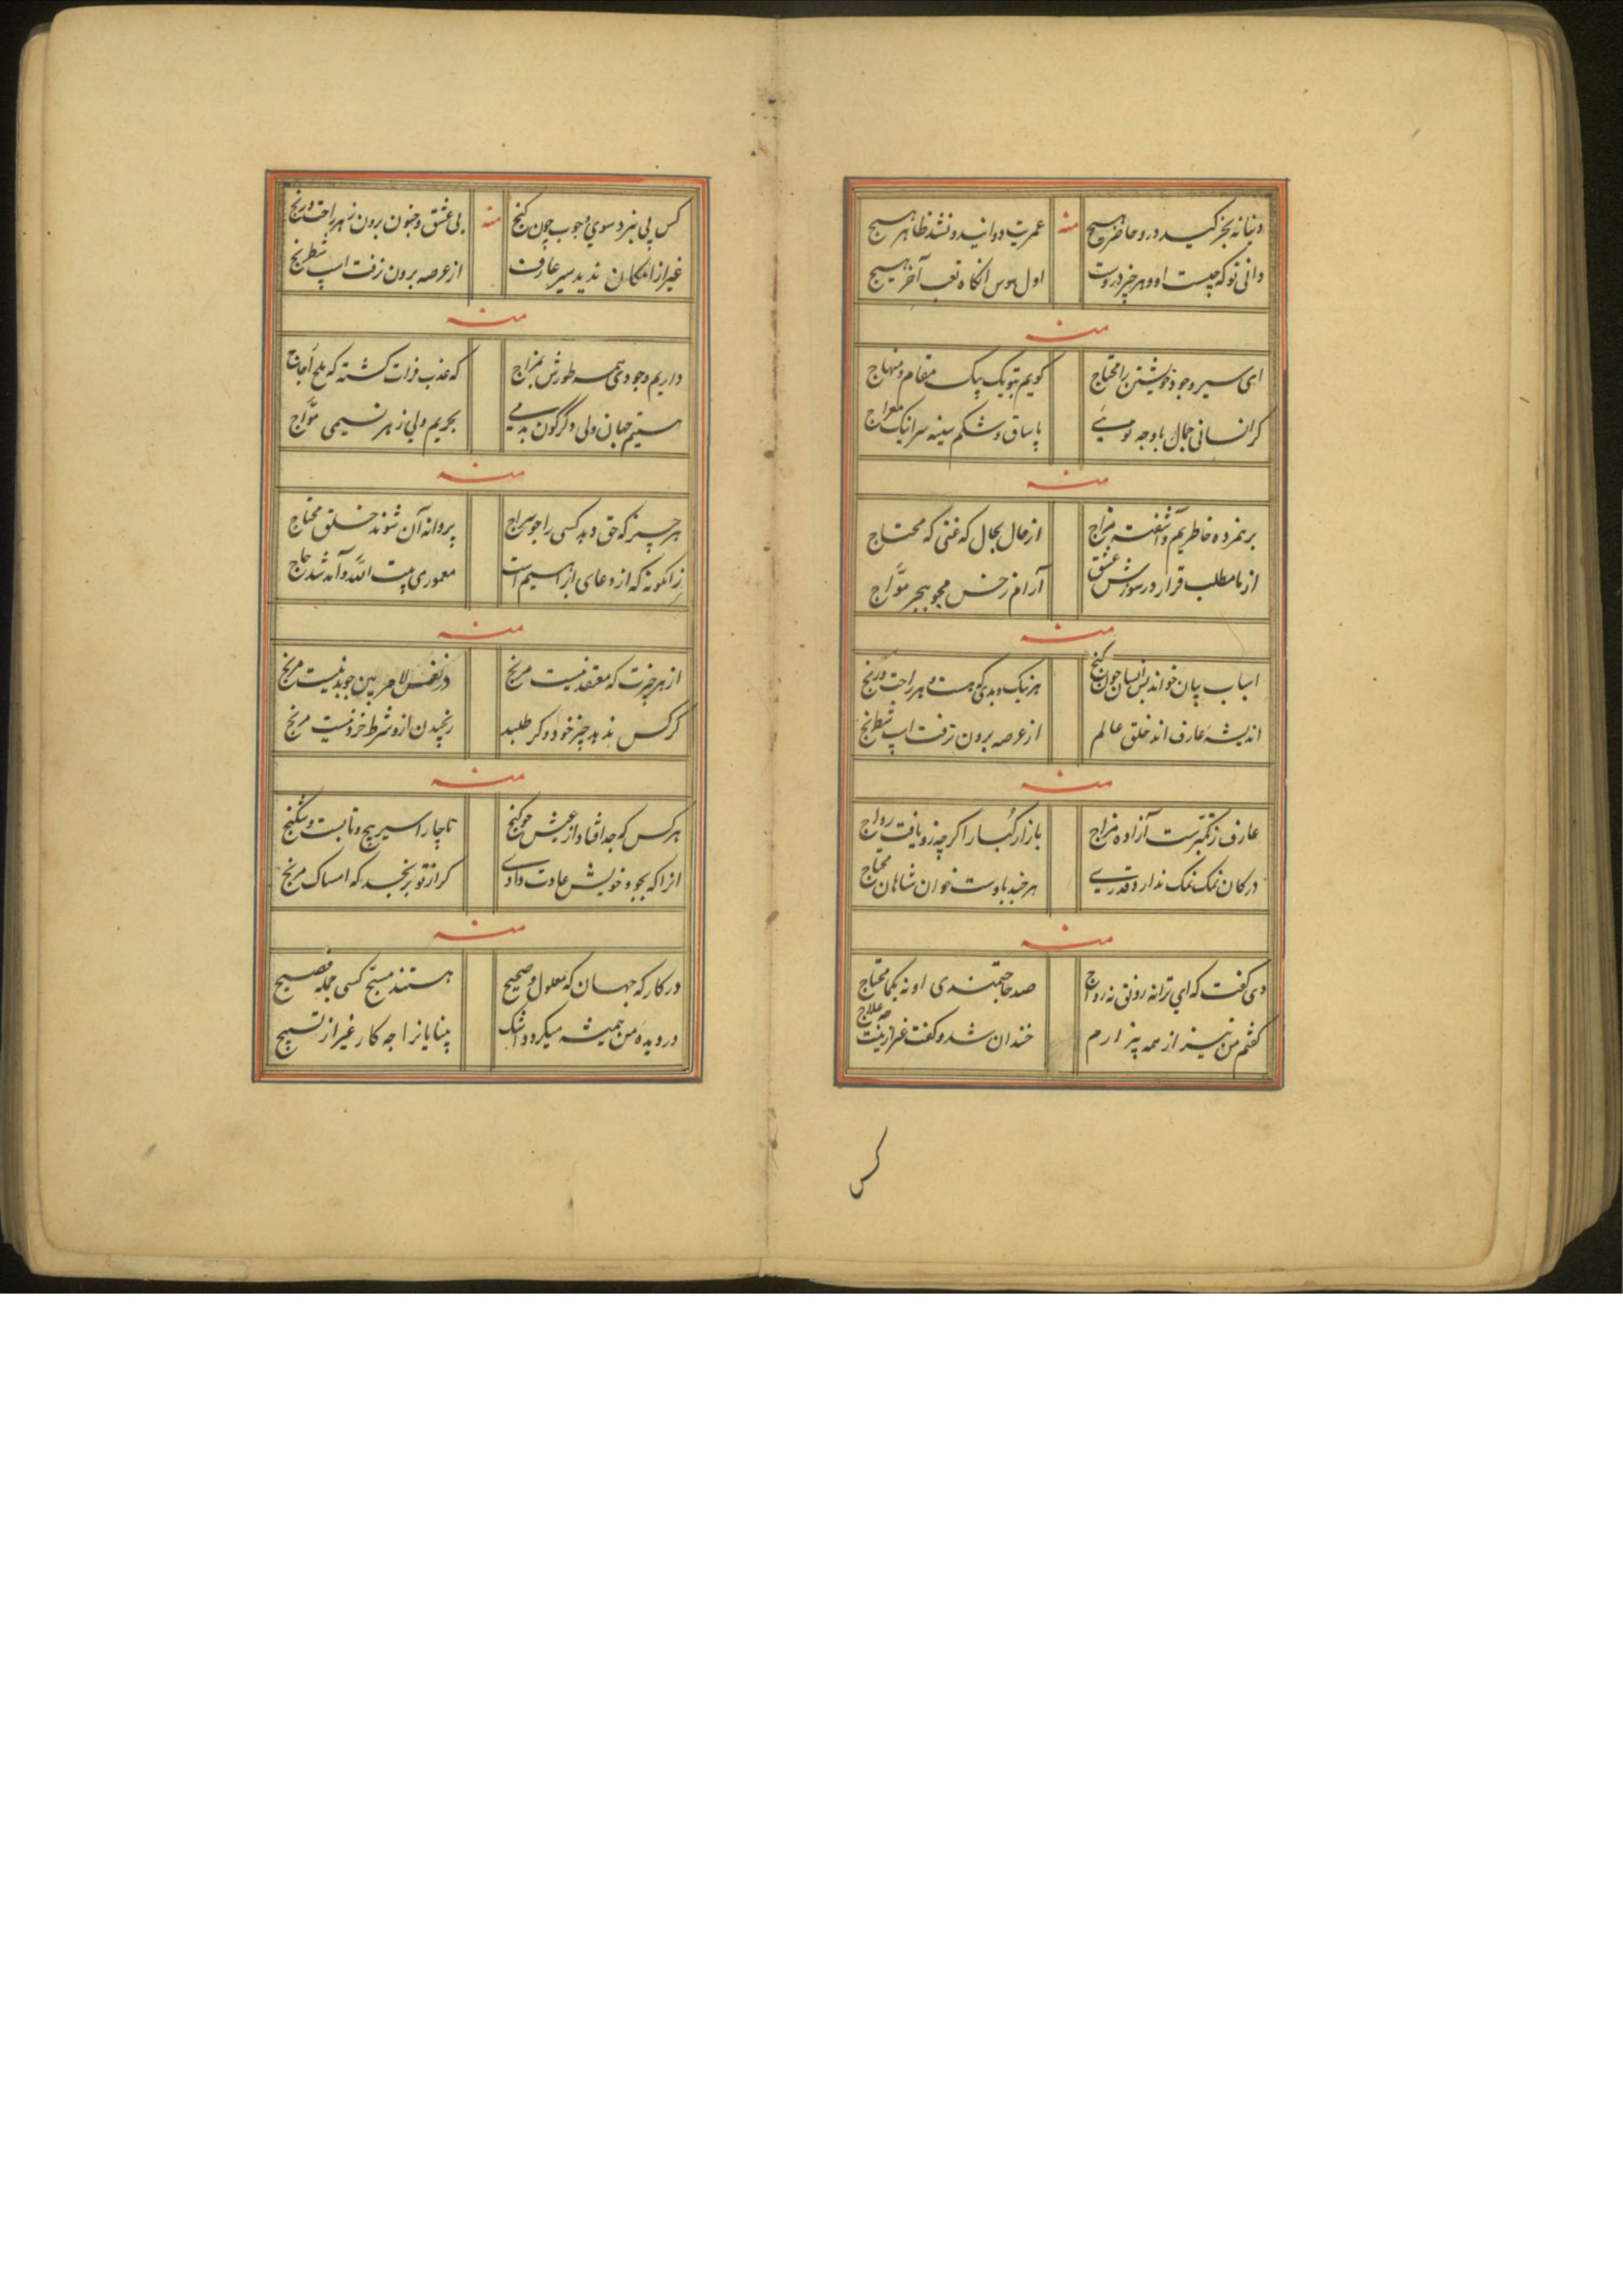 دنیا نه بجز کید درو حاضر هیچ
عمریت دوانید و نشد ظاهر هیچ
دانی تو که چیست او و هر چیز دروست
اول هوس انکاه تعب آخر هیچ
منه
منه
ای سیر وجود خویشتن را محتاج
کویم بتو یک بیک مقام و منهاج
کر انسانی جمال باوجه
پا ساق و شکم سینه سر اینک معراج
منه
پژمرده خاطریم و آشفته مزاج
از حال بحال که غنی که محتاج
از ما مطلب قرار در سوزش عشق
آرام ز خس مجو ببحر موّاج
منه
اسباب جهان کنج
هر نیک و بدی که هست و هر راحت و رنج
اندیشهٔ عارف اند خلق عالم
از عرصه برون نرفت اسپ شطرنج
منه
عارف ز تکبّرست آزاده مزاج
بازار کُبّار اکر چه زو یافت رواج
در کان نمک نمک ندارد قدری
هر چند باوست خوان شاهان محتاج
منه
دی کفت که ای ترا نه رونق نه رواج
صد حاجتمندی او نه یکجا محتاج
کفتم من نیز از همه بیزارم
خندان شد و کفت غیر ازینت چه علاج
کس
کس پی نبرد سوی وجوب چون کنج
بی عشق و جنون برون ز هر راحت و رنج
غیر از امکان ندید سیر عارف
از عرصه برون نرفت اسپ شطرنج
منه
منه
داریم وجودی همه طورش بمزاج
که عذب فرات کشته که ملح اُجاج
هستیم جهان ولی دکرکون بدمی
بحریم ولی ز هر نسیمی موّاج
منه
هر چیز که حق دهد کسی را چو سراج
پروانه آن شوند خلق محتاج
زانکونه که از دعای ابراهیم است
معموری بیت اللّه و آمد شد حاج
منه
از هر چیزت که معتقد نیست مرنج
در نفس لامر بین چو بد نیست مرنج
کر کس ندهد چیز خود و کر طلبد
رنجیدن ازو شرط خرد نیست مرنج
منه
هر کس که جدا فتاد از عیش چو کنج
ناچار اسیر پیچ و تابست و شکنج
انرا که بجود خویش عادت دادی
کر از تو برنجد که امساک مرنج
منه
در کار که جهان که معلول و صحیح
هستند مسبّح کسی جمله فصیح
در دیده من همیشه میکردد اشک
بینایانرا چه کار غیر از تسبیح